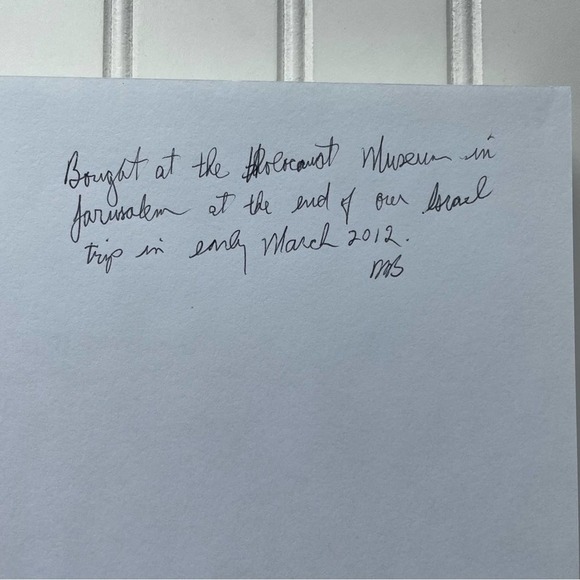 Bought at the Holocaust Museum in
Jarusalem at the end of our Israel
trip in early March 2012.
MB